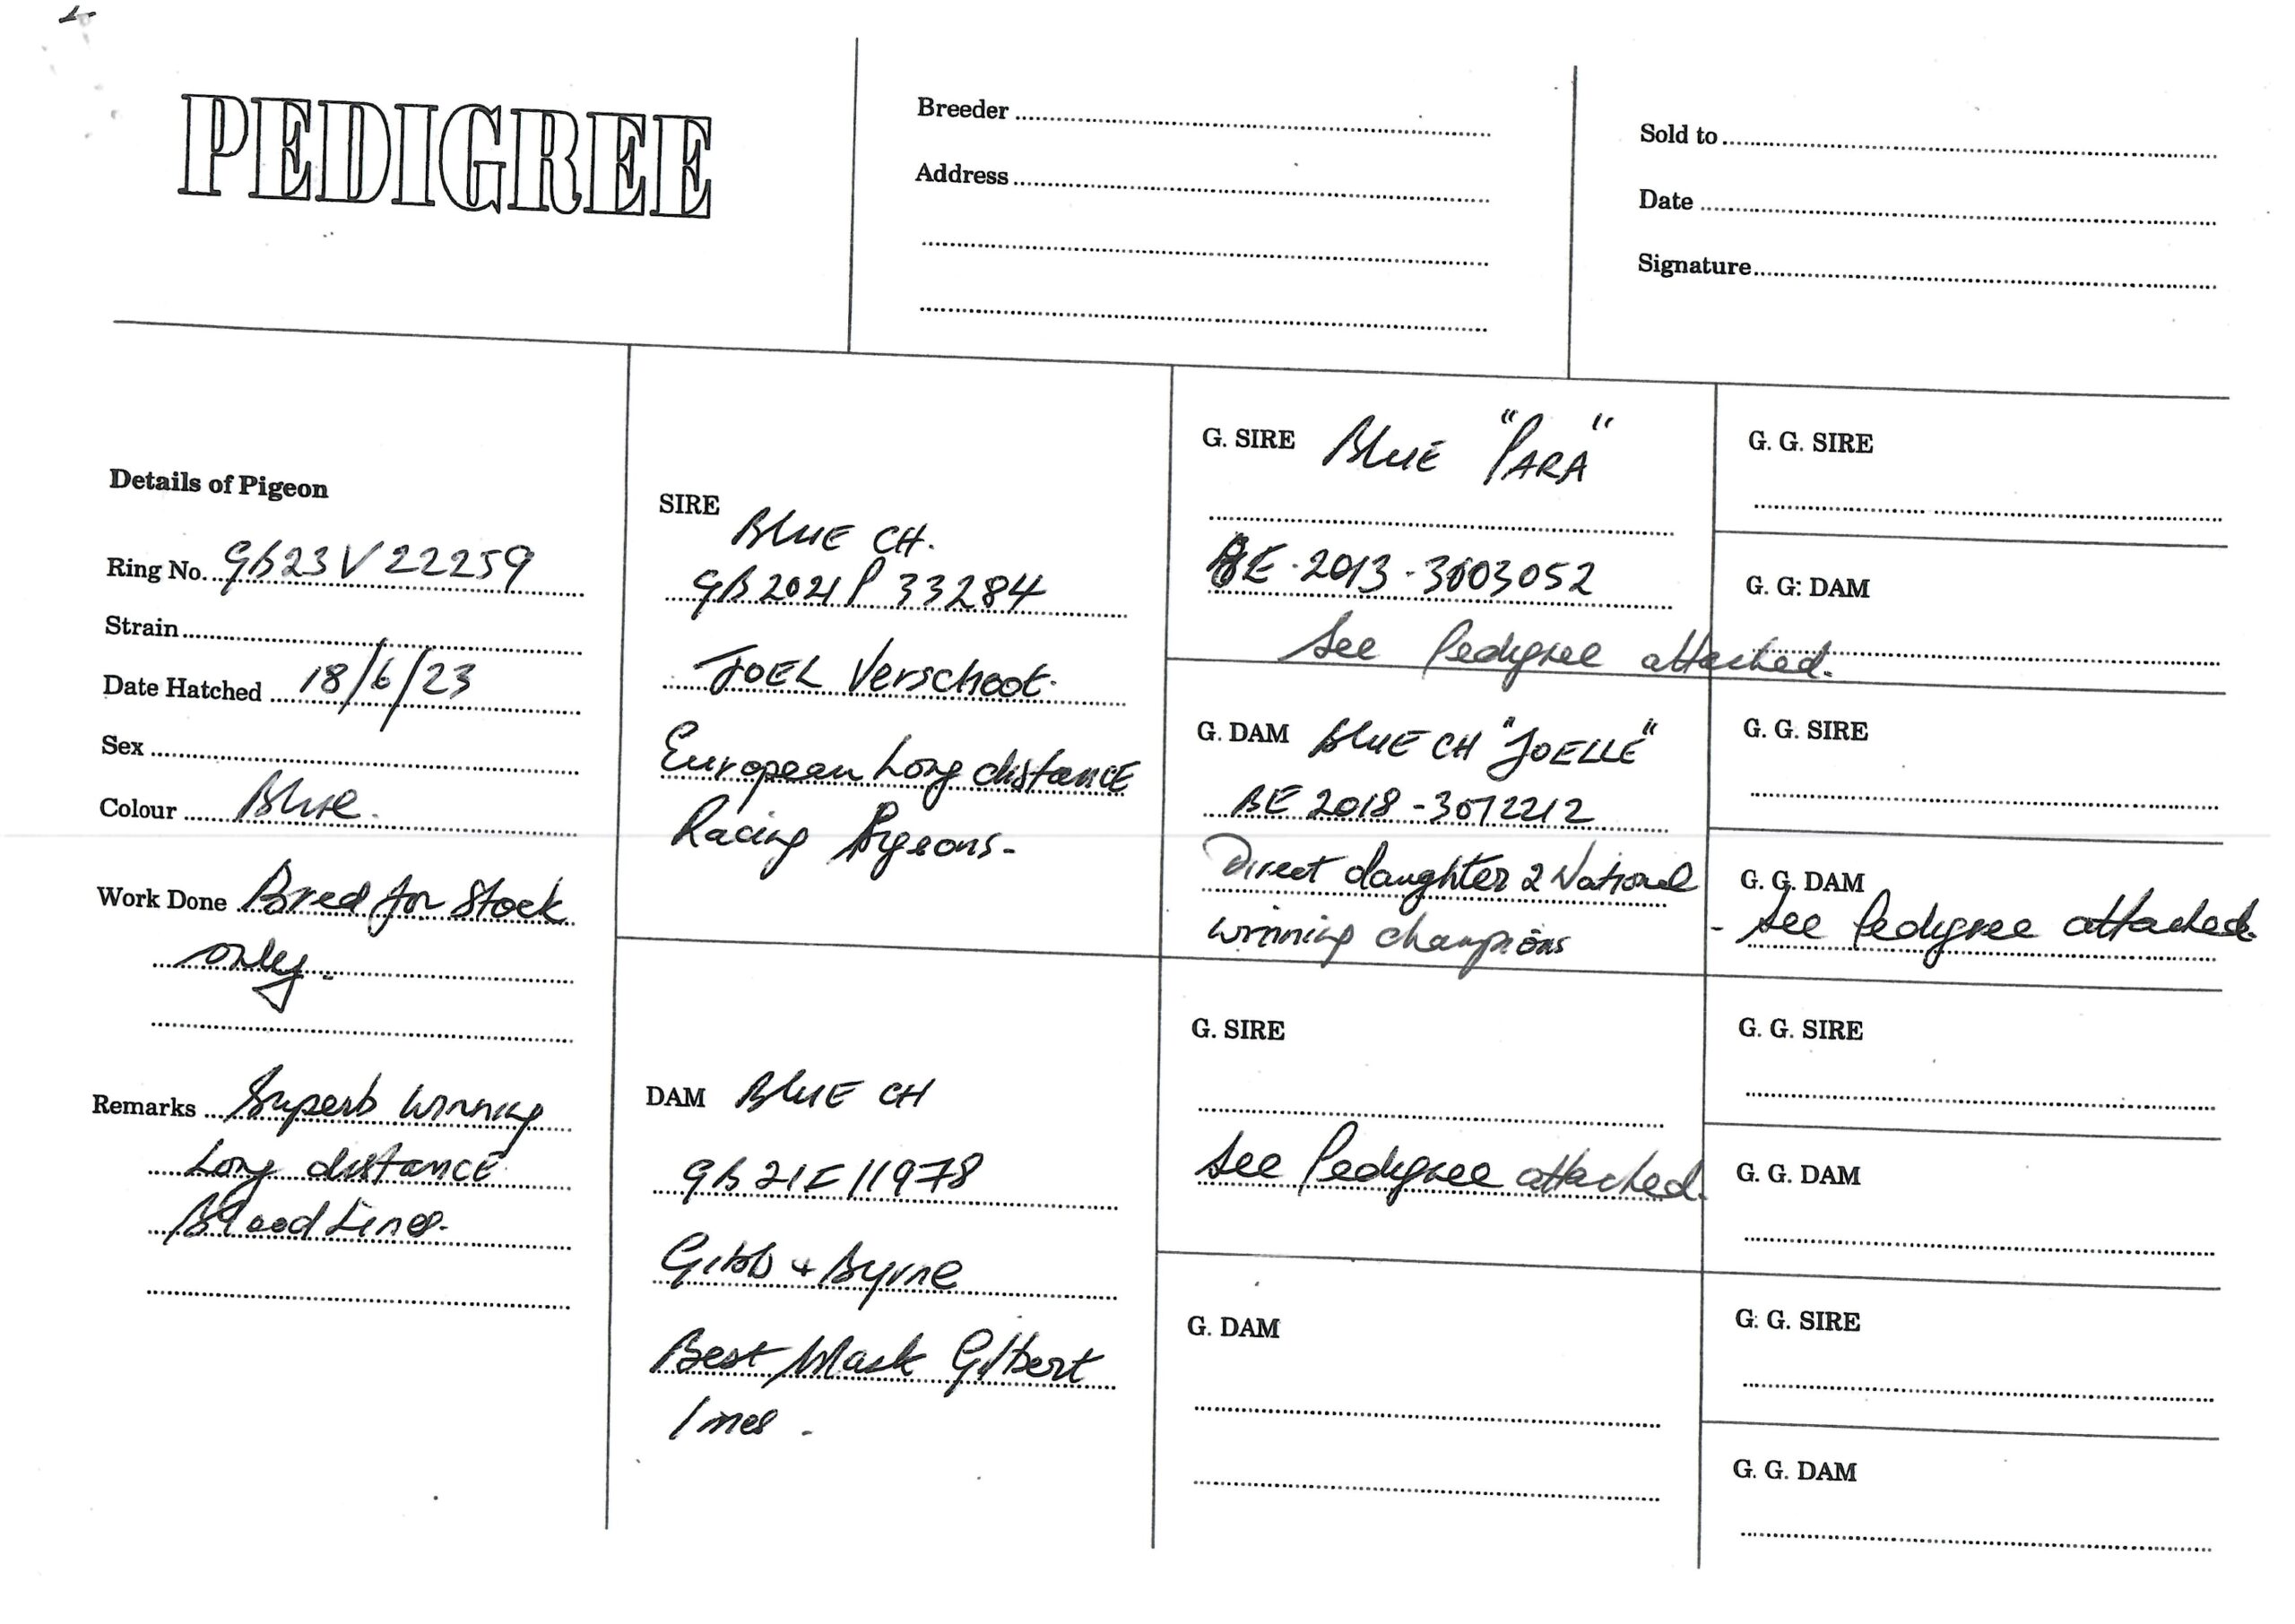 PEDIGREE
Breeder
Address
Sold to
Date
Signature
Details of Pigeon
Ring No. GB23V22259
Strain
Date Hatched 18/6/23
Sex
Colour Blue.
Work Done Bred for Stock
only.
Remarks Superb winning
Long distance
Blood Lines.
SIRE
BLUE CH.
GB2021P 33284
JOEL Verschoot.
European Long distance
Racing Pigeons-
DAM BLUE CH
GB21F11978
Gibb + Byrne
Best Mask Gilbert
lines.
G. SIRE BLUE "PARA"
BE-2013-3003052
See Pedigree attached.
G. DAM BLUE CH "JOELLE"
BE 2018-3072212
Direct daughter 2 National
winning champions
G. SIRE
See Pedigree attached.
G. DAM
G. G. SIRE
G. G: DAM
G. G. SIRE
G. G. DAM
- See Pedigree attached.
G. G. SIRE
G. G. DAM
G. G. SIRE
G. G. DAM